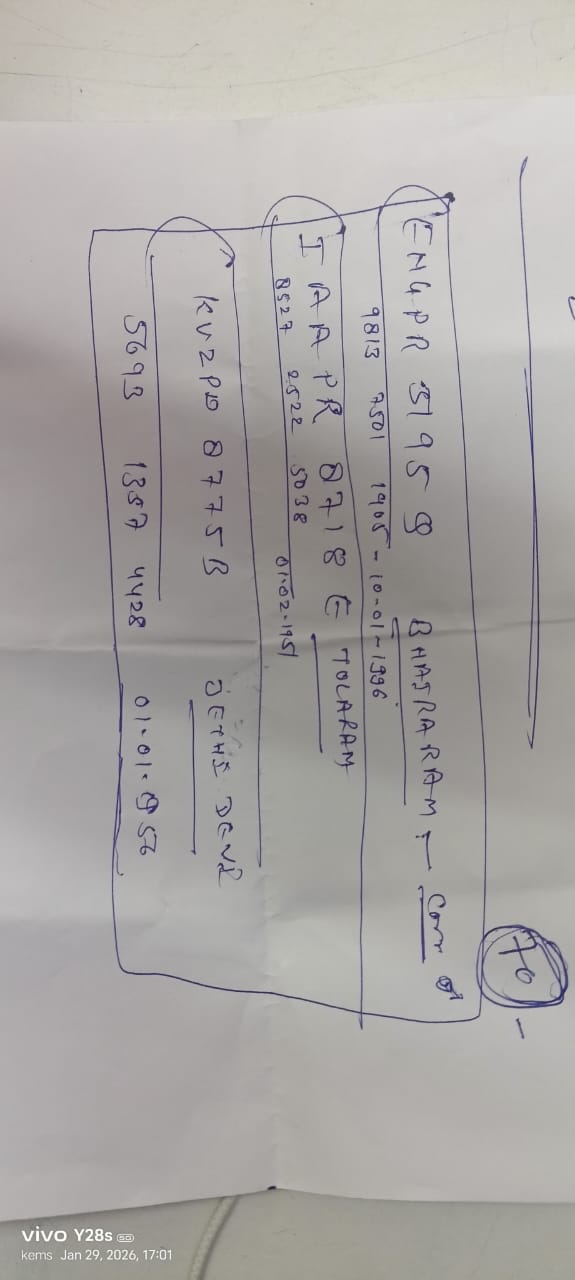 70
ENGPR 5195 BHAJRARAM -
9813 7501 1905 - 10-01-1996
IAAPR 8718 E TOLARAM
8527 2522 5038 01.02.1951
KVZPD 8775B JETHI DEVI
5693 1357 4428 01.01.1956
vivo Y28s 5G
kems Jan 29, 2026, 17:01